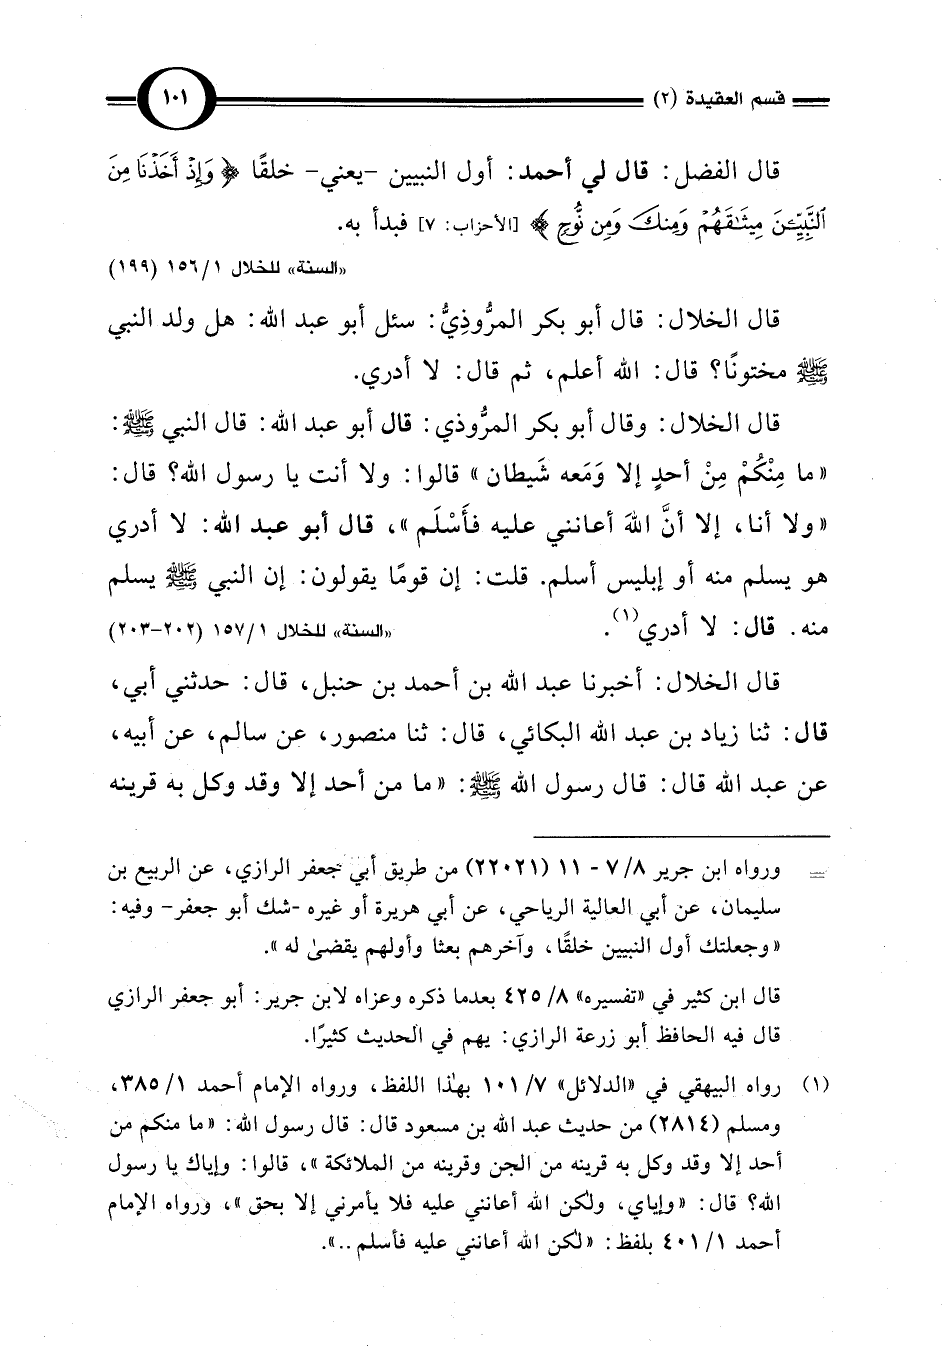 قسم العقيدة (٢)
١٠١
قال الفضل: قال لي أحمد: أول النبيين -يعني- خلقًا ﴿وَإِذْ أَخَذْنَا مِنَ
ٱلنَّبِيِّـۧنَ مِيثَٰقَهُمْ وَمِنكَ وَمِن نُّوحٍ﴾ [الأحزاب: ٧] فبدأ به.
«السنة» للخلال ١/ ١٥٦ (١٩٩)
قال الخلال: قال أبو بكر المرُّوذِيُّ: سئل أبو عبد الله: هل ولد النبي
ﷺ مختونًا؟ قال: الله أعلم، ثم قال: لا أدري.
قال الخلال: وقال أبو بكر المرُّوذي: قال أبو عبد الله: قال النبي ﷺ:
«ما مِنْكُمْ مِنْ أحدٍ إلا وَمَعه شَيطان» قالوا: ولا أنت يا رسول الله؟ قال:
«ولا أنا، إلا أنَّ اللهَ أعانني عليه فأَسْلَم»، قال أبو عبد الله: لا أدري
هو يسلم منه أو إبليس أسلم. قلت: إن قومًا يقولون: إن النبي ﷺ يسلم
منه. قال: لا أدري(١). «السنة» للخلال ١/ ١٥٧ (٢٠٢-٢٠٣)
قال الخلال: أخبرنا عبد الله بن أحمد بن حنبل، قال: حدثني أبي،
قال: ثنا زياد بن عبد الله البكائي، قال: ثنا منصور، عن سالم، عن أبيه،
عن عبد الله قال: قال رسول الله ﷺ: «ما من أحد إلا وقد وكل به قرينه
= ورواه ابن جرير ٨/ ٧ - ١١ (٢٢٠٢١) من طريق أبي جعفر الرازي، عن الربيع بن
سليمان، عن أبي العالية الرياحي، عن أبي هريرة أو غيره -شك أبو جعفر- وفيه:
«وجعلتك أول النبيين خلقًا، وآخرهم بعثا وأولهم يقضىٰ له».
قال ابن كثير في «تفسيره» ٨/ ٤٢٥ بعدما ذكره وعزاه لابن جرير: أبو جعفر الرازي
قال فيه الحافظ أبو زرعة الرازي: يهم في الحديث كثيرًا.
(١) رواه البيهقي في «الدلائل» ٧/ ١٠١ بهٰذا اللفظ، ورواه الإمام أحمد ١/ ٣٨٥،
ومسلم (٢٨١٤) من حديث عبد الله بن مسعود قال: قال رسول الله: «ما منكم من
أحد إلا وقد وكل به قرينه من الجن وقرينه من الملائكة»، قالوا: وإياك يا رسول
الله؟ قال: «وإياي، ولٰكن الله أعانني عليه فلا يأمرني إلا بحق»، ورواه الإمام
أحمد ١/ ٤٠١ بلفظ: «لٰكن الله أعانني عليه فأسلم..».